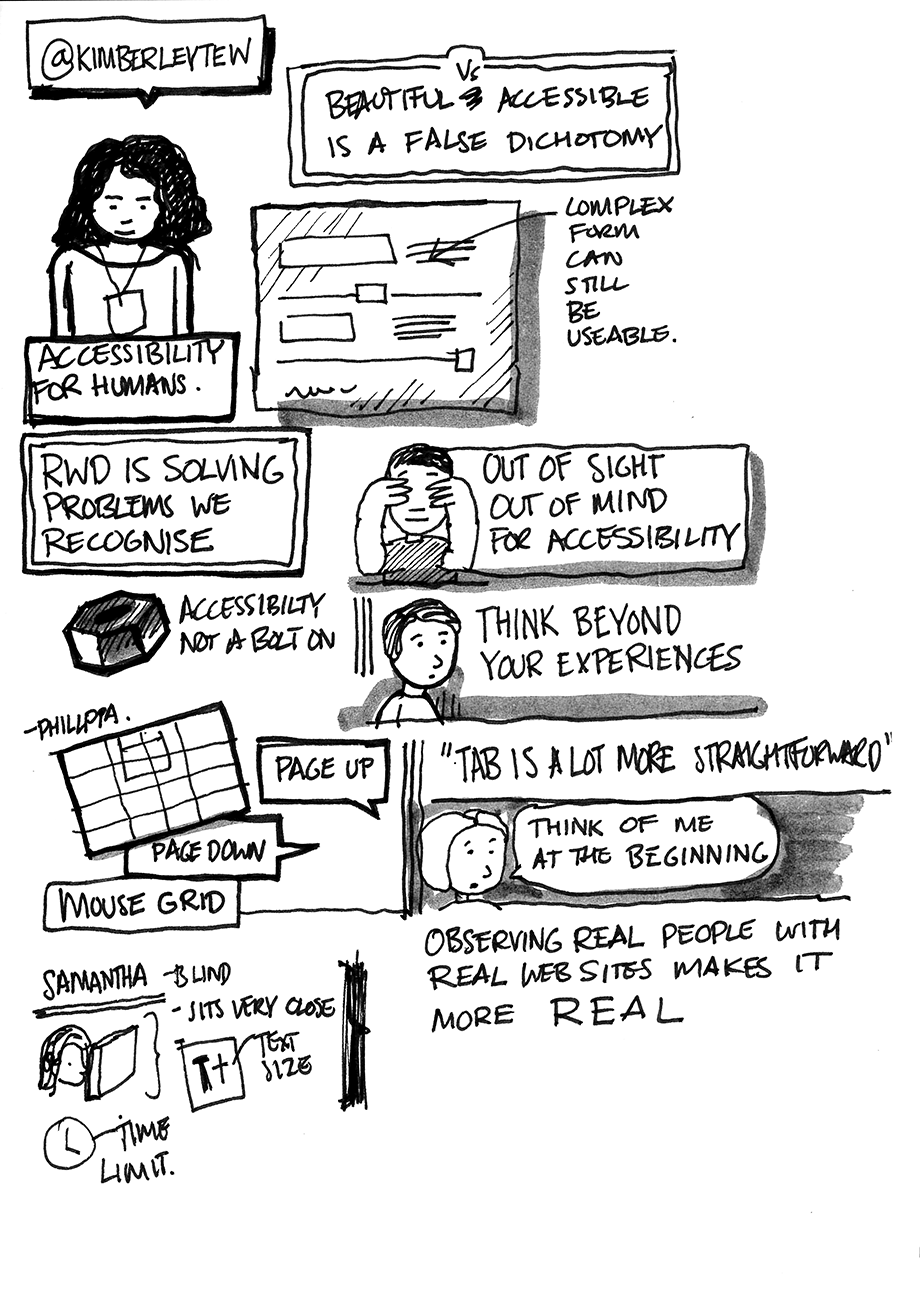 @KIMBERLEYTEW
Vs
BEAUTIFUL ACCESSIBLE
IS A FALSE DICHOTOMY
COMPLEX
FORM
CAN
STILL
BE
USEABLE.
ACCESSIBILITY
FOR HUMANS.
RWD IS SOLVING
PROBLEMS WE
RECOGNISE
OUT OF SIGHT
OUT OF MIND
FOR ACCESSIBILITY
ACCESSIBILTY
NOT A BOLT ON
THINK BEYOND
YOUR EXPERIENCES
-PHILLPPA.
PAGE UP
PAGE DOWN
MOUSE GRID
"TAB IS A LOT MORE STRAIGHTFORWARD"
THINK OF ME
AT THE BEGINNING
OBSERVING REAL PEOPLE WITH
REAL WEBSITES MAKES IT
MORE REAL
SAMANTHA -BLIND
-SITS VERY CLOSE
TEXT
SIZE
T+
TIME
LIMIT.